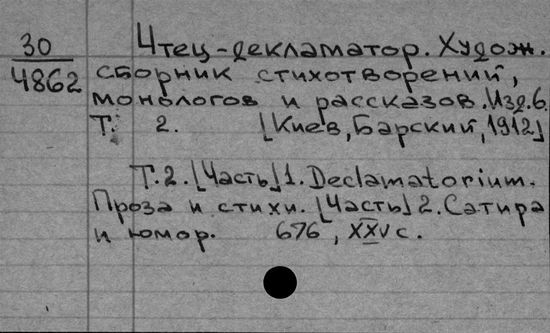 30
4862
Чтец-декламатор. Худож.
сборник стихотворений,
монологов и рассказов. Изд. 6.
Т. 2. [Киев, Барский, 1912]
Т. 2. [Часть] 1. Declamatorium.
Проза и стихи. [Часть] 2. Сатира
и юмор. 676, XXV с.